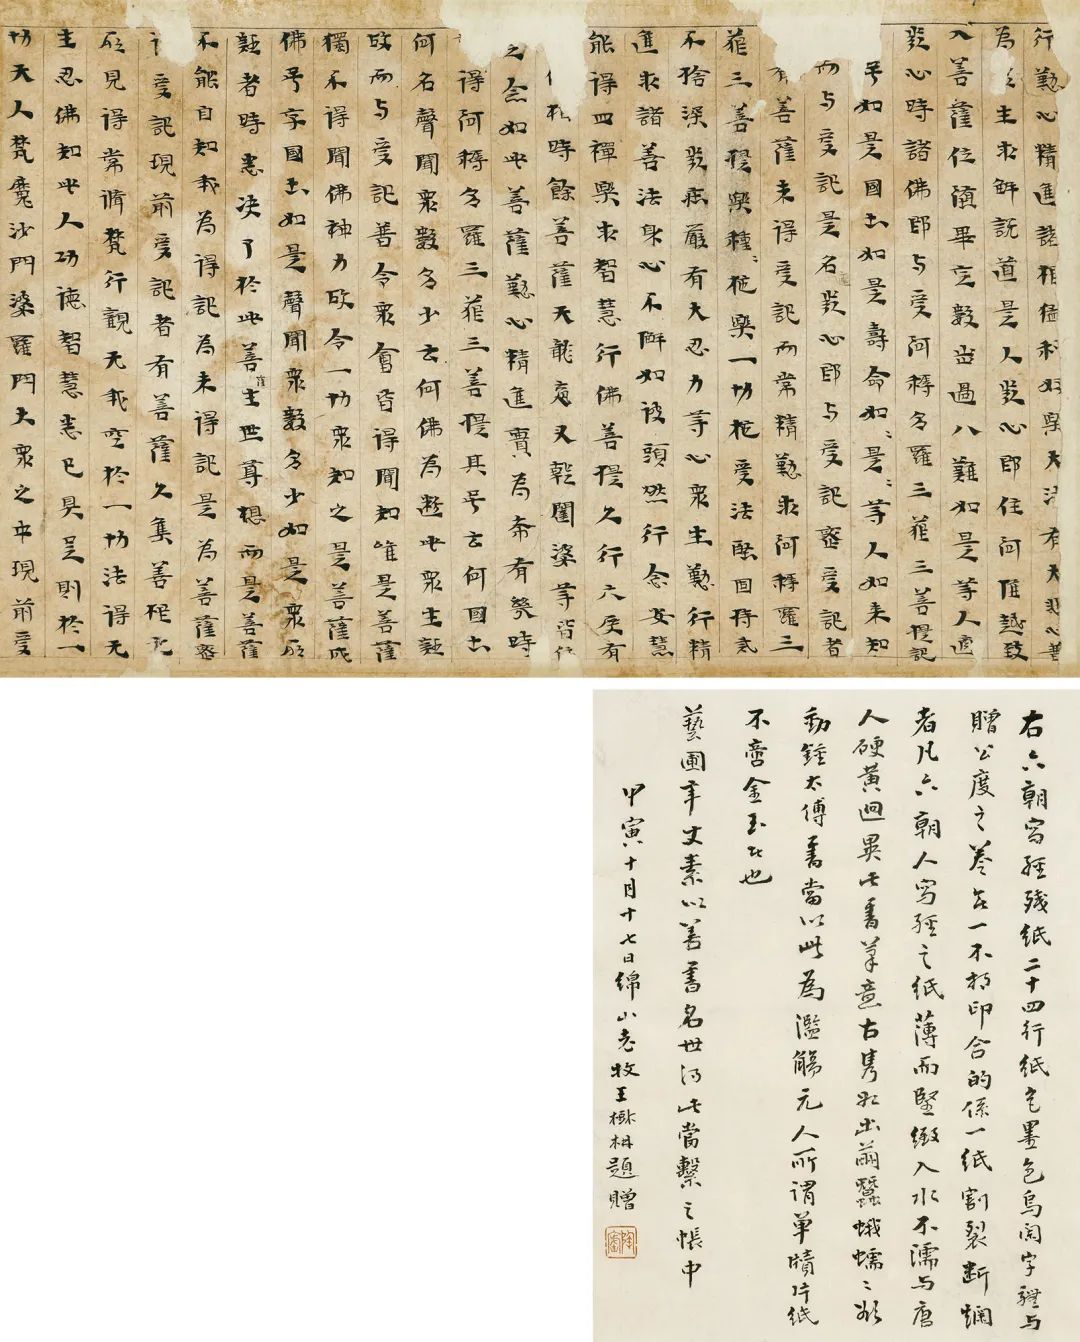 行懃心精進諸根猛利好樂大法有大悲心普
為眾生求解説道是人發心即住阿惟越致
入菩薩位墮畢定數出過八難如是等人適
發心時諸佛即与受阿耨多羅三藐三菩提記
号如是國土如是壽命如〻是〻等人如来知
而与受記是名發心即与受記密受記者
有菩薩未得受記而常精懃求阿耨羅三
藐三菩提樂種〻施樂一切施受法堅固持戒
不捨深發莊嚴有大忍力等心衆生懃行精
進求諸善法身心不懈如被頭燃行念安慧
能得四禪樂求智慧行佛菩提久行六度有
相時餘菩薩天龍夜叉乾闥婆等皆作
之念如此菩薩懃心精進實為希有幾時
得阿耨多羅三藐三菩提其号云何國土
何名聲聞衆數多少云何佛為斷此衆生疑
故而与受記普令衆會皆得聞知唯是菩薩
獨不得聞佛神力故令一切衆知之是菩薩成
佛号字國土如是聲聞衆數多少如是衆所
疑者時悉決了於此菩薩生世尊想而是菩薩
不能自知我為得記為未得記是為菩薩密
受記現前受記者有菩薩久集善根无
所見得常脩梵行觀无我空於一切法得无
生忍佛知此人功德智慧悉已具足則於一
切天人梵魔沙門婆羅門大衆之中現前受
右六朝寫經殘紙二十四行紙色墨色烏闌字體与
贈公度之卷無一不相印合的係一紙割裂斷爛
者凡六朝人寫經之紙薄而堅緻入水不濡与唐
人硬黃迥異此書筆意古雋如出繭蠶蛾蠕〻欲
動鍾太傅書當以此為濫觴元人所謂單牘片紙
不啻金玉者也
藝圃年丈素以善書名世得此當繫之帳中
甲寅十月十七日綿山老牧王樹枏題贈
陶廬